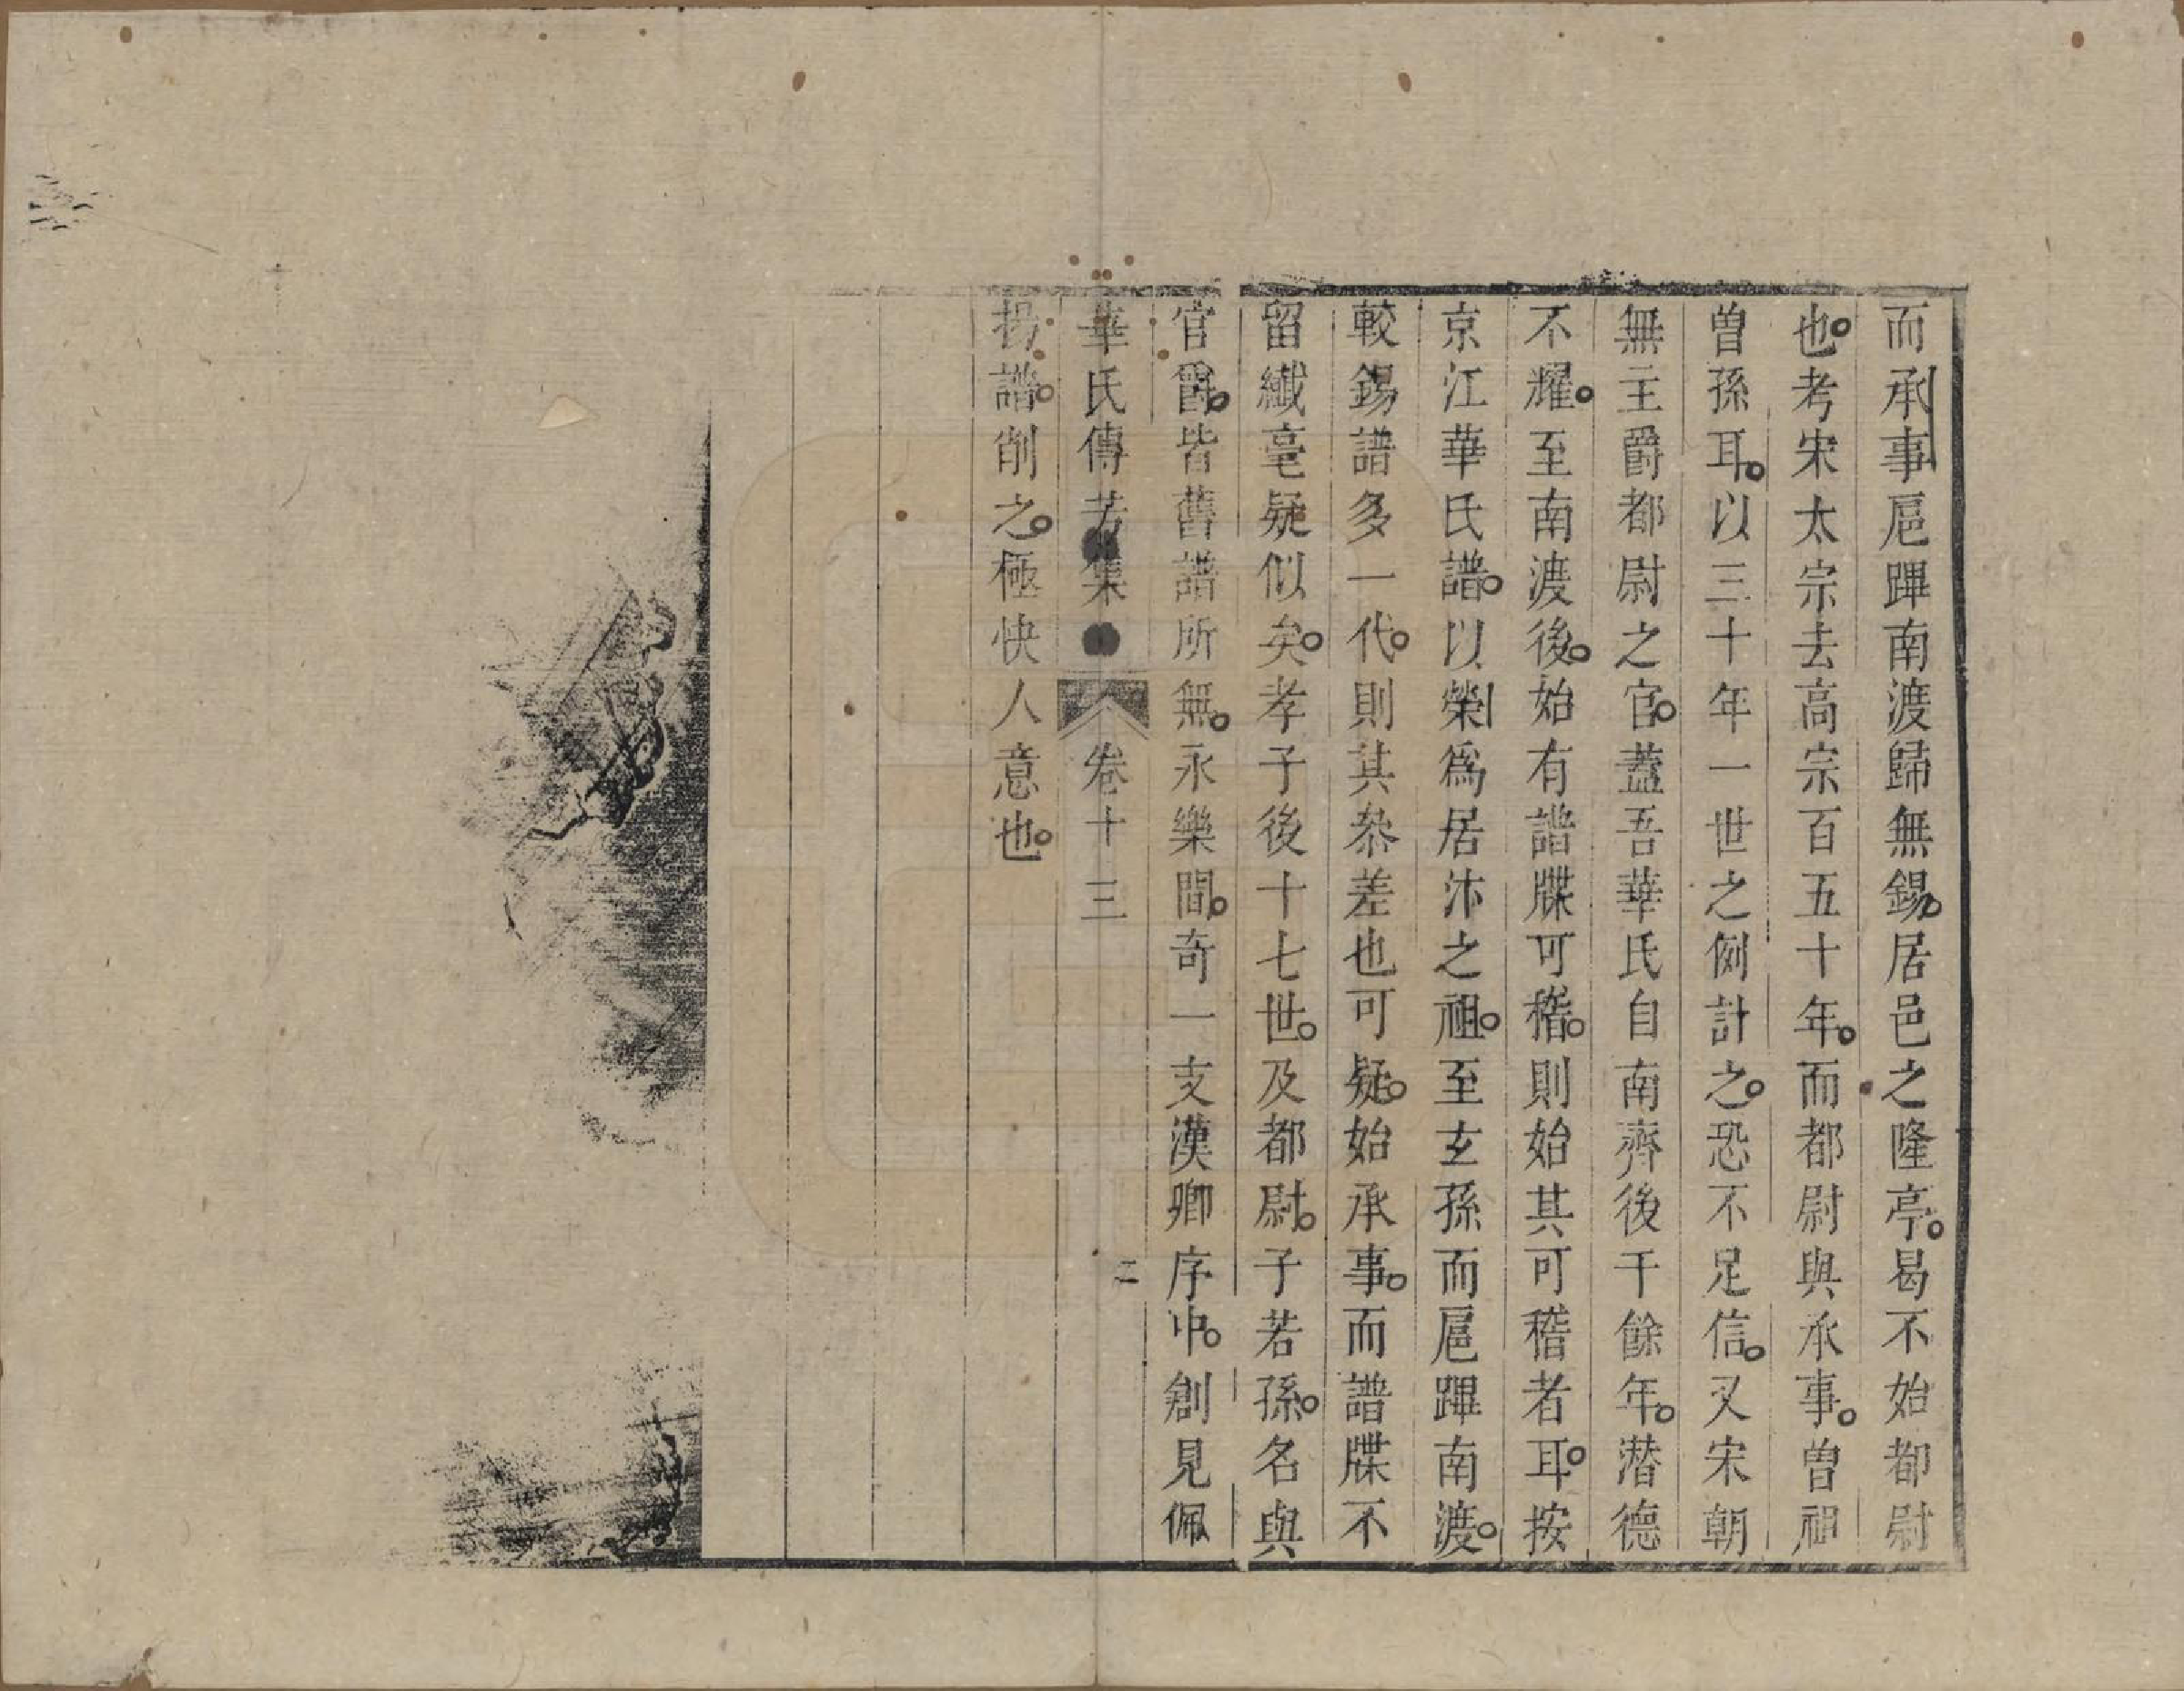 而承事扈蹕南渡歸無錫。居邑之隆亭。曷不始都尉
也。考宋太宗去高宗百五十年。而都尉與承事。曽祖
曽孫耳。以三十年一世之例計之。恐不足信。又宋朝
無主爵都尉之官。葢吾華氏自南齊後千餘年。潜德
不耀。至南渡後。始有譜牒可稽。則始其可稽者耳。按
京江華氏譜。以榮爲居汴之祖。至玄孫而扈蹕南渡。
較錫譜多一代。則其叅差也可疑。始承事。而譜牒不
留纎毫疑似矣。孝子後十七世。及都尉。子若孫。名與
官爵。皆舊譜所無。永樂間。奇一支漢卿序中。創見佩
華氏傳芳集 卷十三 二
揚譜。削之。極快人意也。